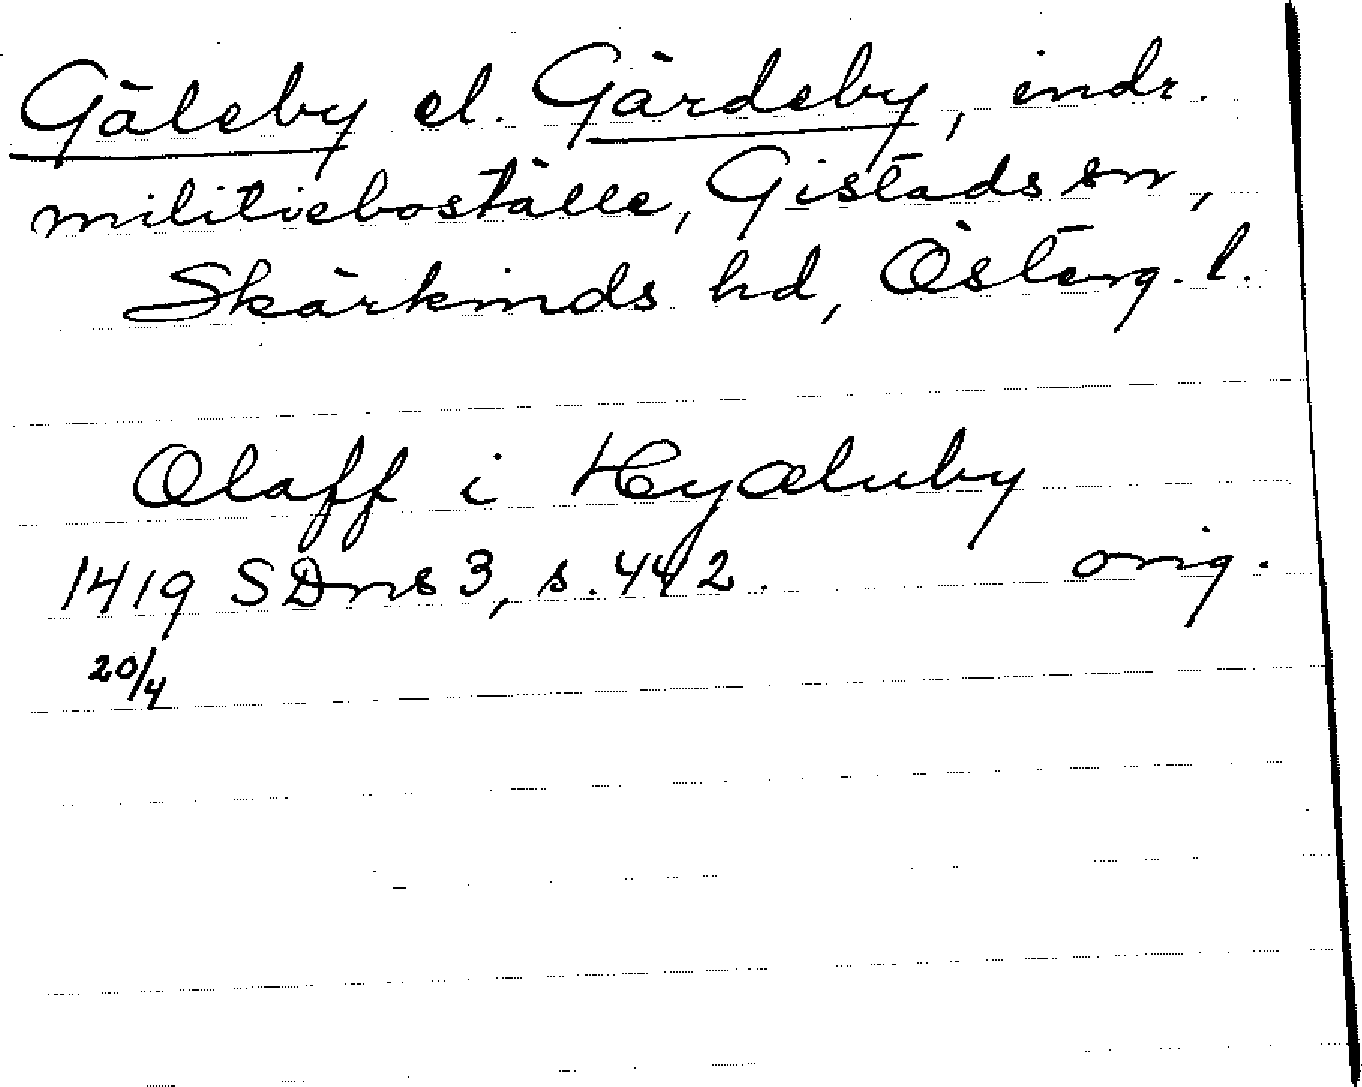 Gäleby el. Gärdeby, indr.
militieboställe, Gistads sn,
Skärkinds hd, Österg. l.
Olaff i Hyæluby
1419 SDns 3, s. 442. orig.
20/4